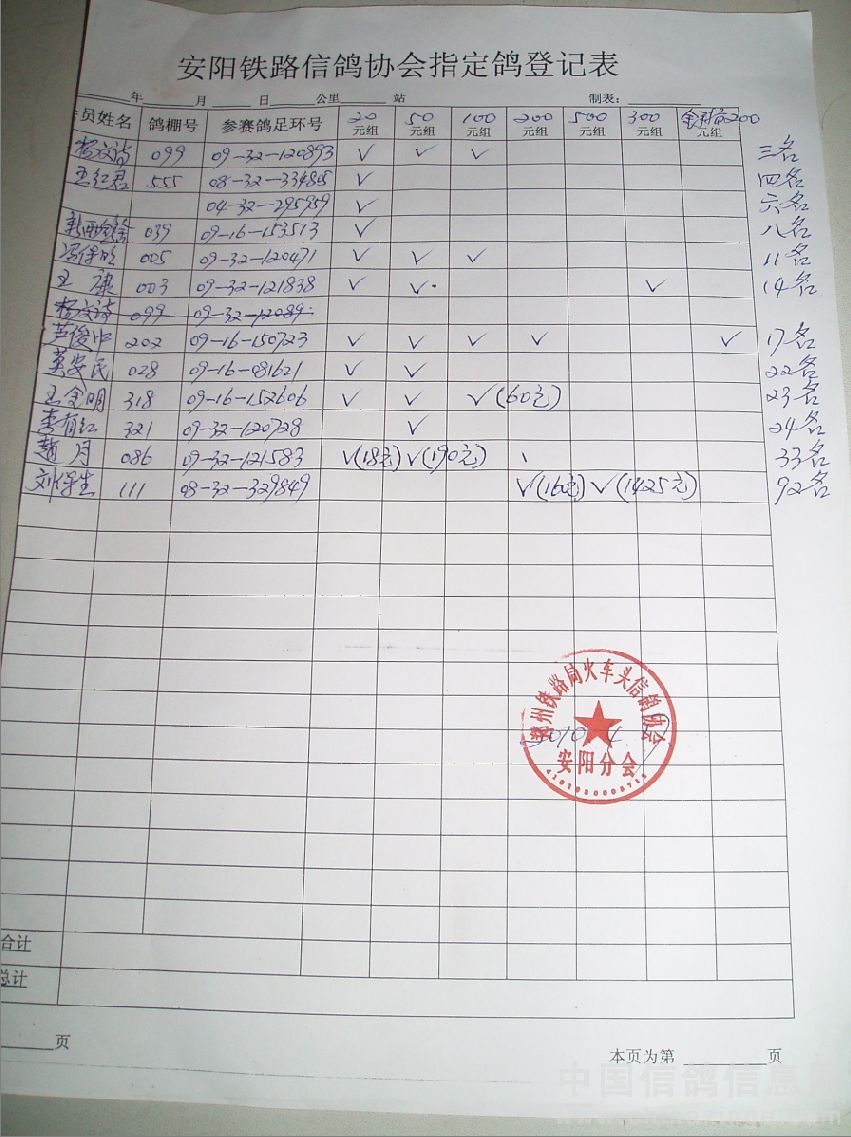 安阳铁路信鸽协会指定鸽登记表
年 月 日 公里 站 制表:
员姓名 鸽棚号 参赛鸽足环号 20元组 50元组 100元组 200元组 500元组 300元组 200元组
杨文涛 099 09-32-120893 ✓ ✓ ✓ 三名
王红君 555 08-32-334805 ✓ 四名
04-32-295959 ✓ 六名
039 09-16-153513 ✓ 八名
冯保旺 005 09-32-120471 ✓ ✓ ✓ 11名
王康 003 09-32-121838 ✓ ✓ ✓ 14名
杨文涛 099 09-32-12089
芦俊中 202 09-16-150723 ✓ ✓ ✓ ✓ ✓ 17名
英安民 028 09-16-081621 ✓ ✓ 22名
王金明 318 09-16-152606 ✓ ✓ ✓(60元) 23名
李有红 321 09-32-120728 ✓ 24名
赵月 086 09-32-121583 ✓(18元) ✓(190元) 33名
刘保生 111 08-32-329849 ✓(160元) ✓(1425元) 92名
郑州铁路局火车头信鸽协会
2010.4
安阳分会
合计
总计
页 本页为第 页
中国信鸽信息